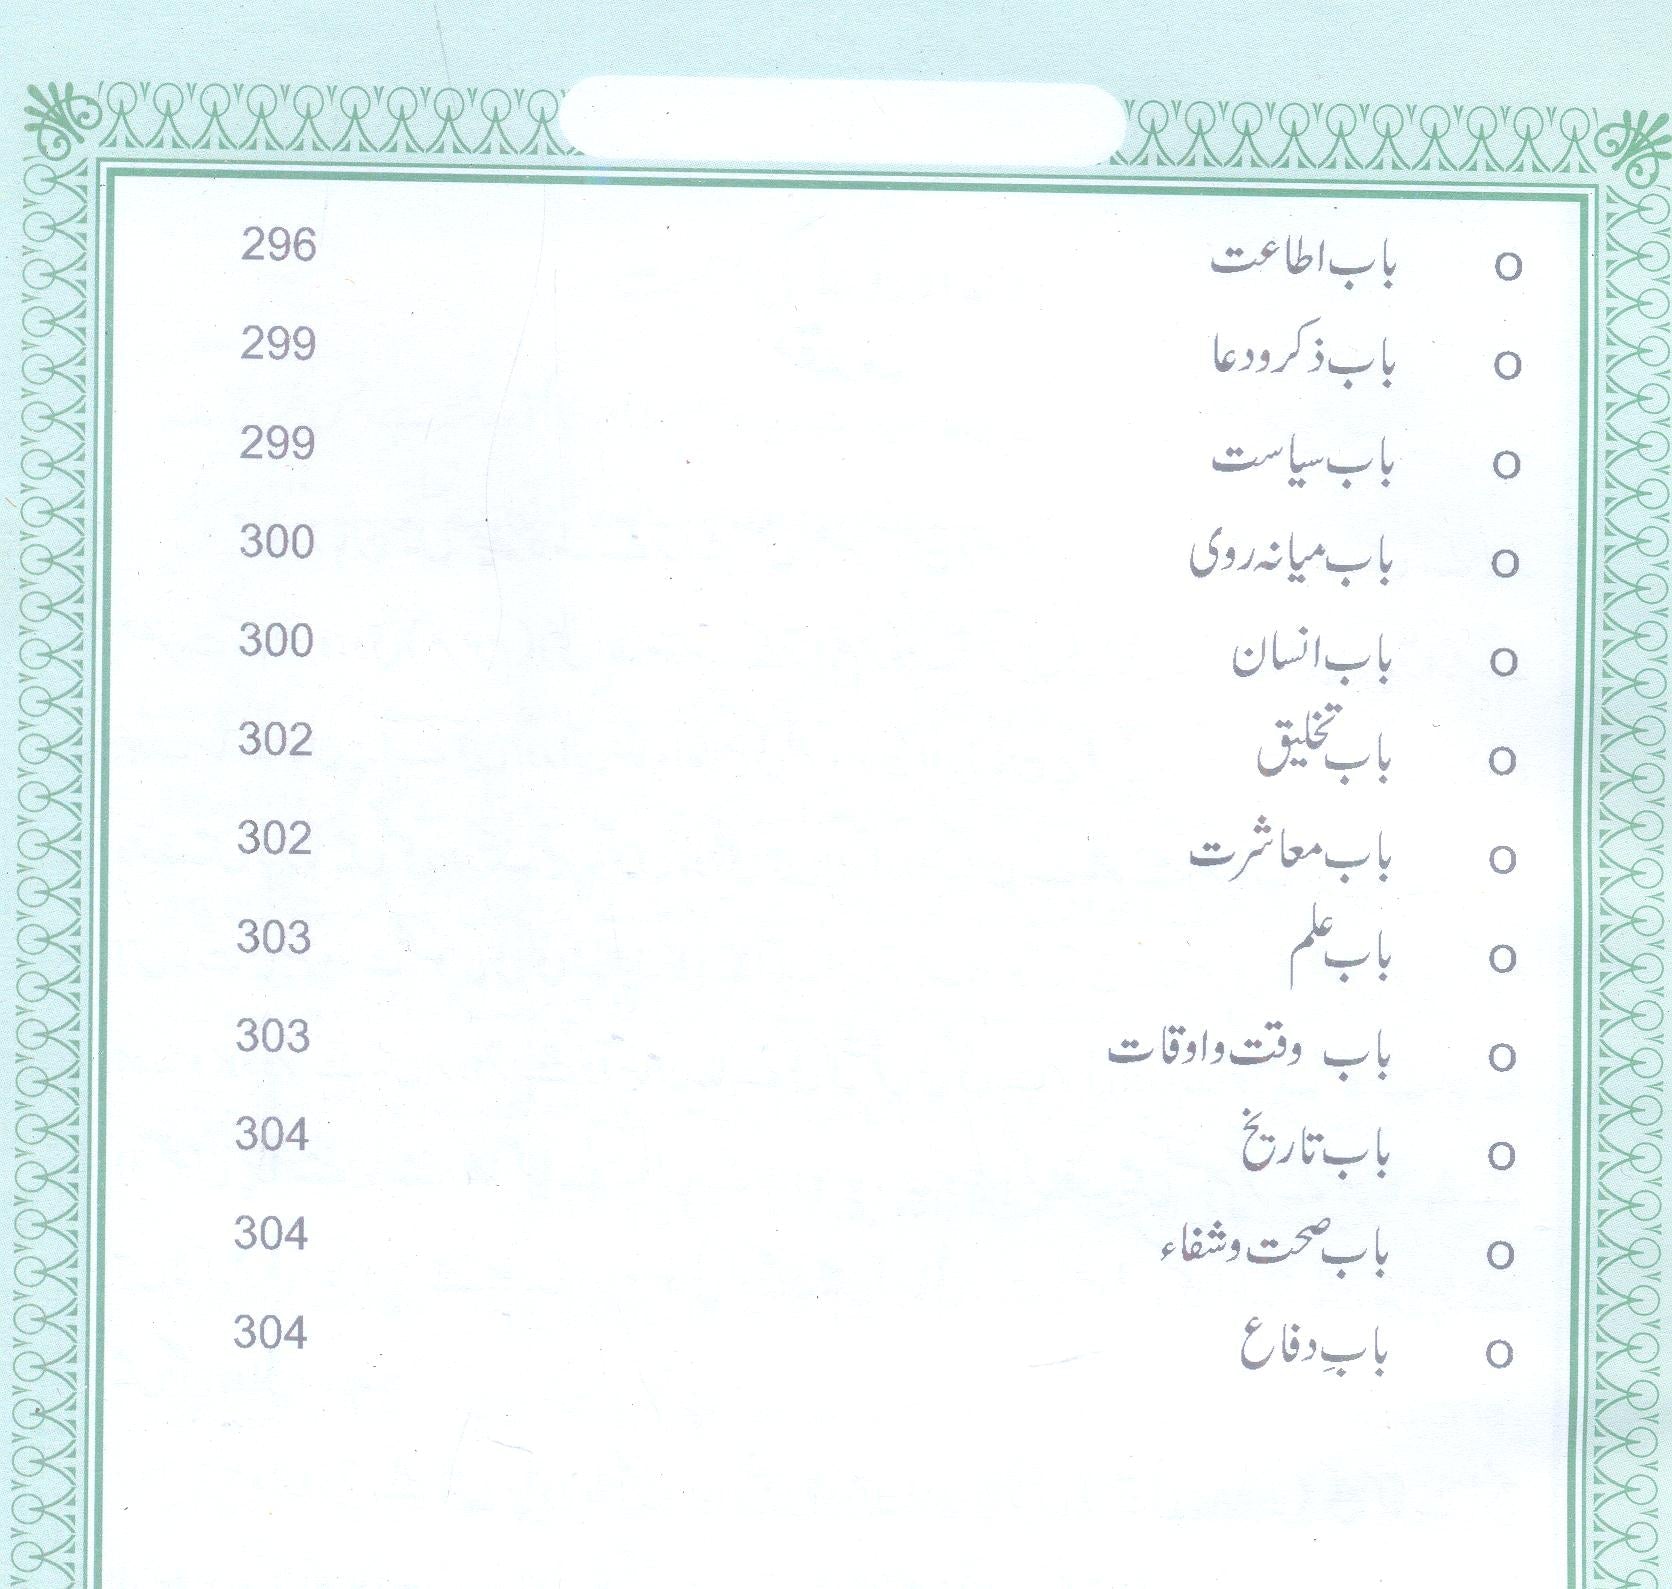 o باب اطاعت 296
o باب ذکر و دعا 299
o باب سیاست 299
o باب میانہ روی 300
o باب انسان 300
o باب تخلیق 302
o باب معاشرت 302
o باب علم 303
o باب وقت و اوقات 303
o باب تاریخ 304
o باب صحت و شفاء 304
o بابِ دفاع 304